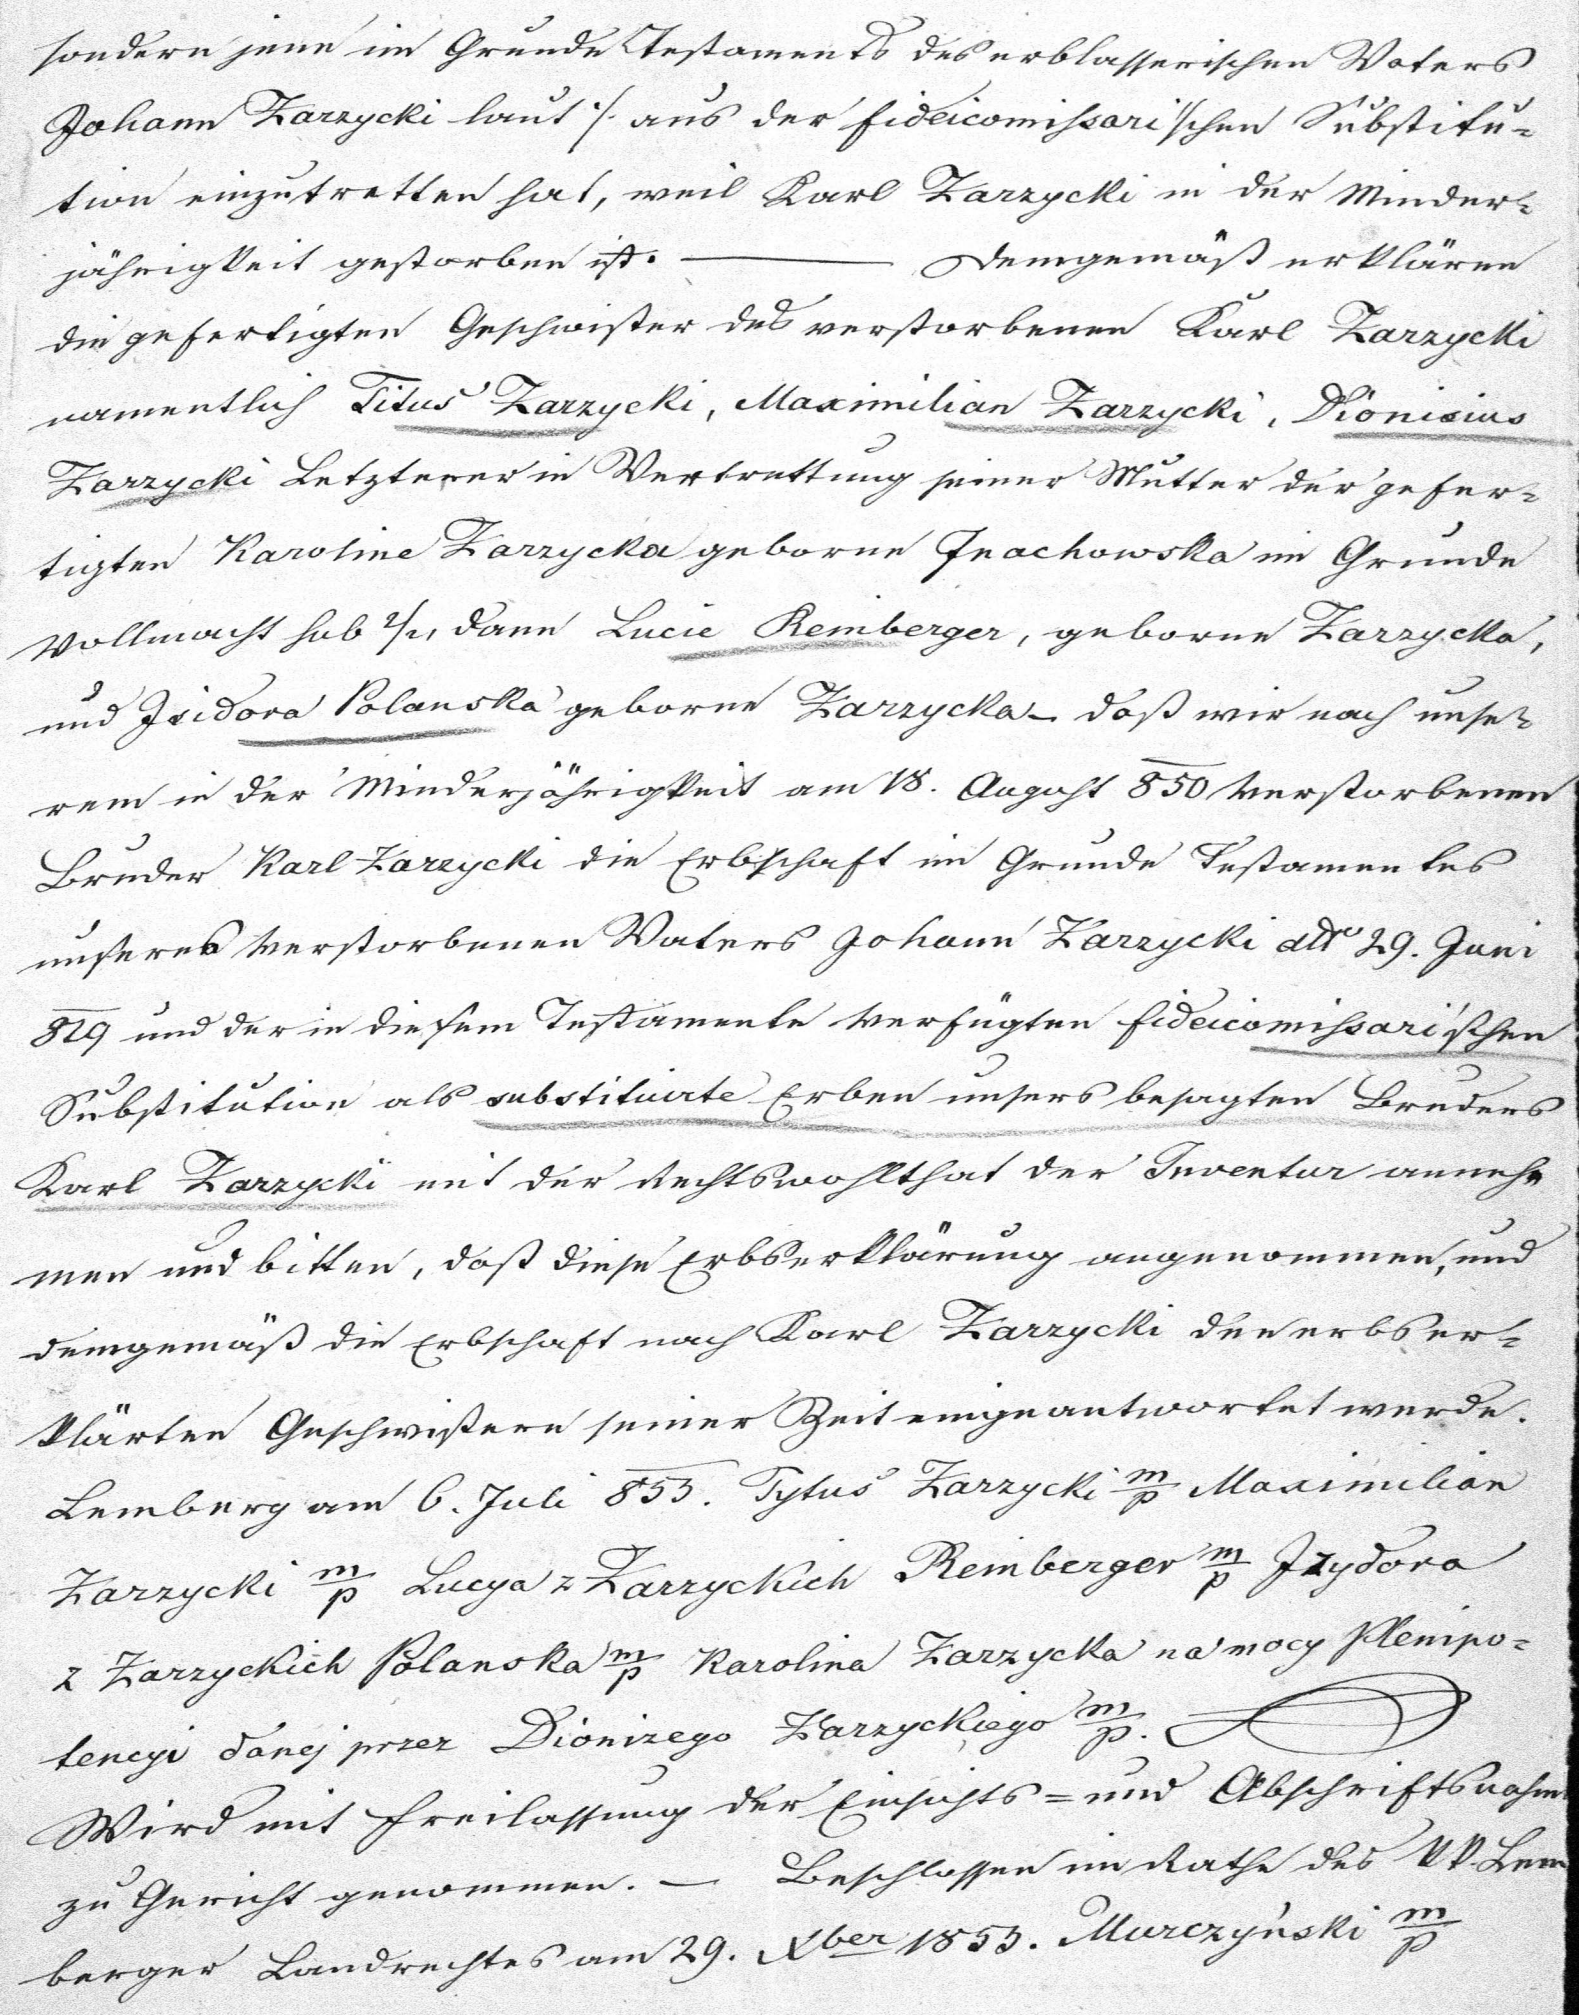 sondern jene im Grunde Testaments des erblasserischen Vaters
Johann Zarzycki laut ·/. aus der fideicomissari'schen Substitu-
tion einzutretten hat, weil Karl Zarzycki in der Minder-
jährigkeit gestorben ist. — Demgemäß erklären
die gefertigten Geschwister des verstorbenen Karl Zarzycki
namentlich Titus Zarzycki, Maximilian Zarzycki, Dionisius
Zarzycki Letzterer in Vertrettung seiner Mutter der gefer-
tigten Karoline Zarzycka geborne Inachowska im Grunde
Vollmacht sub 2/., dann Lucie Reinberger, geborne Zarzycka,
und Isidora Polanska geborne Zarzycka – daß wir nach unse-
rem in der Minderjährigkeit am 18. August 850 verstorbenen
Bruder Karl Zarzycki die Erbschaft im Grunde Testamentes
unseres verstorbenen Vaters Johann Zarzycki ddto 29. Juni
829 und der in diesem Testamente verfügten fideicomissari'schen
Substitution als substituirte Erben unsers besagten Bruders
Karl Zarzycki mit der Rechtswohlthat der Inventur anneh
men und bitten, daß diese Erbserklärung angenommen, und
demgemäß die Erbschaft nach Karl Zarzycki den erbser-
klärten Geschwistern seiner Zeit eingeantwortet werde.
Lemberg am 6. Juli 853. Tytus Zarzycki m/p Maximilian
Zarzycki m/p Lucya z Zarzyckich Reinberger m/p Izydora
z Zarzyckich Polanska m/p Karolina Zarzycka na mocy Plenipo=
tencyi danej przez Dionizego Zarzyckiego m/p.
Wird mit Freilassung der Einsichts = und Abschriftsnahm
zu Gericht genommen. — Beschlossen im Rathe des kk. Lem
berger Landrechtes am 29. Xber 1853. Murczyński m/p